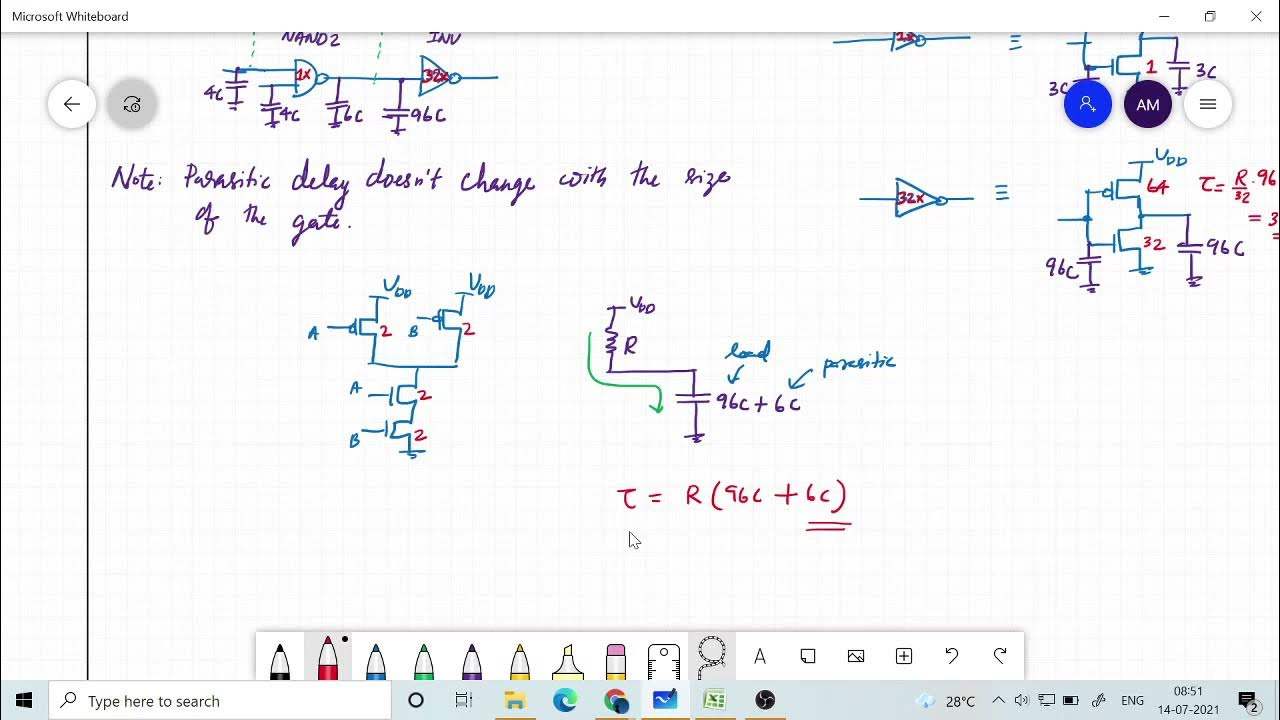 Microsoft Whiteboard
NAND2
INV
1x
32x
4C
4C
6C
96C
1x
≡
1
3C
3C
AM
Note: Parasitic delay doesn't change with the size
of the gate.
32x
≡
VDD
64
32
96C
96C
τ = R/32 . 96
= 3
=
VDD
VDD
A
2
B
2
A
2
B
2
VDD
R
load
parasitic
96C + 6C
τ = R (96C + 6C)
A
Type here to search
28°C
ENG
08:51
14-07-2021
2